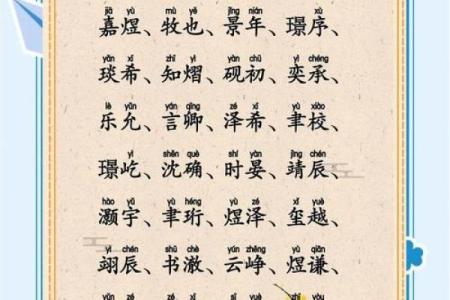 jiā yù mù yě jǐng nián xù
嘉煜、牧也、景年、璟序、
xī zhī yì chū yì chéng
琰希、知熠、砚初、奕承、
lè yǔn yán qīng zé xī yù xiào
乐允、言卿、泽希、聿校、
yì shěn què shí yàn jìng chén
璟屹、沈确、时晏、靖辰、
hào yǔ yù yù zé xǐ yuè
灏宇、聿珩、煜泽、玺越、
yì chén shū chè yún zhēng yù qiān
翊辰、书澈、云峥、煜谦、